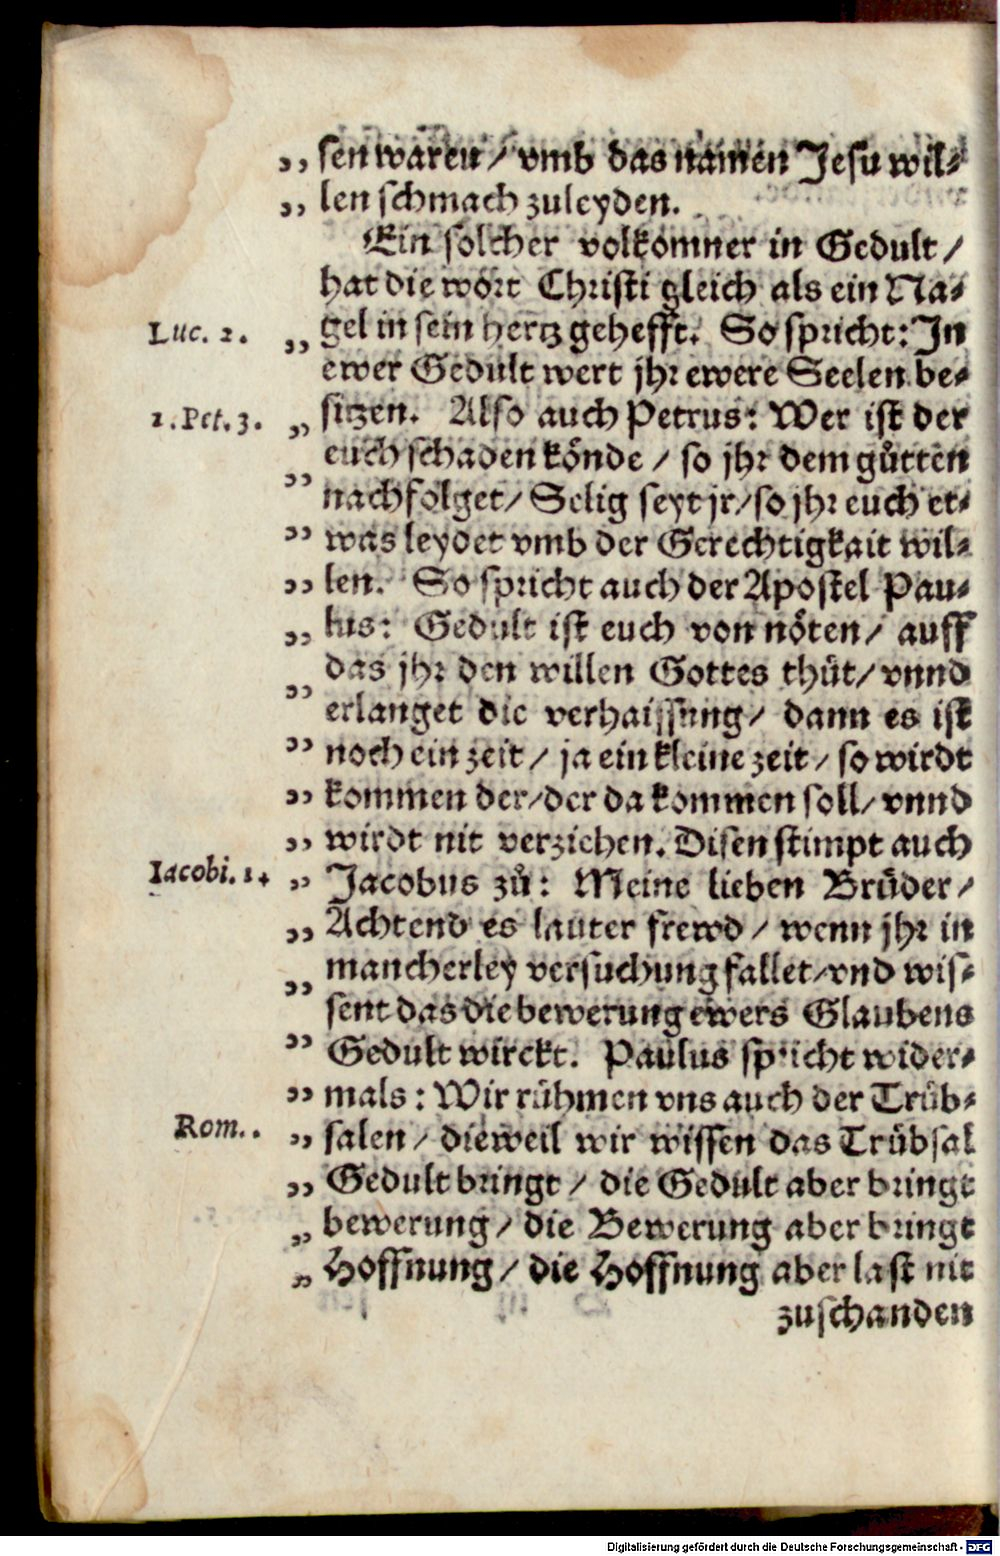 „ sen waren / vmb das namen Jesu wil⸗
„ len schmach zuleyden.
Ein solcher volkomner in Gedult /
hat die wort Christi gleich als ein Na⸗
Luc. 2. „ gel in sein hertz gehefft. So spricht: In
ewer Gedult wert jhr ewere Seelen be⸗
1. Pet. 3. „ sitzen. Also auch Petrus: Wer ist der
„ euch schaden könde / so jhr dem gůtten
nachfolget / Selig seyt jr / so jhr euch et⸗
„ was leydet vmb der Gerechtigkait wil⸗
„ len. So spricht auch der Apostel Pau⸗
„ lus: Gedult ist euch von nöten / auff
„ das jhr den willen Gottes thüt / vnnd
erlanget die verhaissung / dann es ist
„ noch ein zeit / ja ein kleine zeit / so wirdt
„ kommen der / der da kommen soll / vnnd
„ wirdt nit verziehen. Disen stimpt auch
Iacobi. 1. „ Jacobus zů: Meine lieben Brůder /
„ Achtend es lauter frewd / wenn jhr in
„ mancherley versuchung fallet / vnd wis⸗
sent das die bewerung ewers Glaubens
„ Gedult wirckt. Paulus spricht wider⸗
„ mals: Wir rühmen vns auch der Trüb⸗
Rom.. „ salen / dieweil wir wissen das Trübsal
„ Gedult bringt / die Gedult aber bringt
„ bewerung / die Bewerung aber bringt
„ Hoffnung / die Hoffnung aber last nit
zuschanden
Digitalisierung gefördert durch die Deutsche Forschungsgemeinschaft - DFG